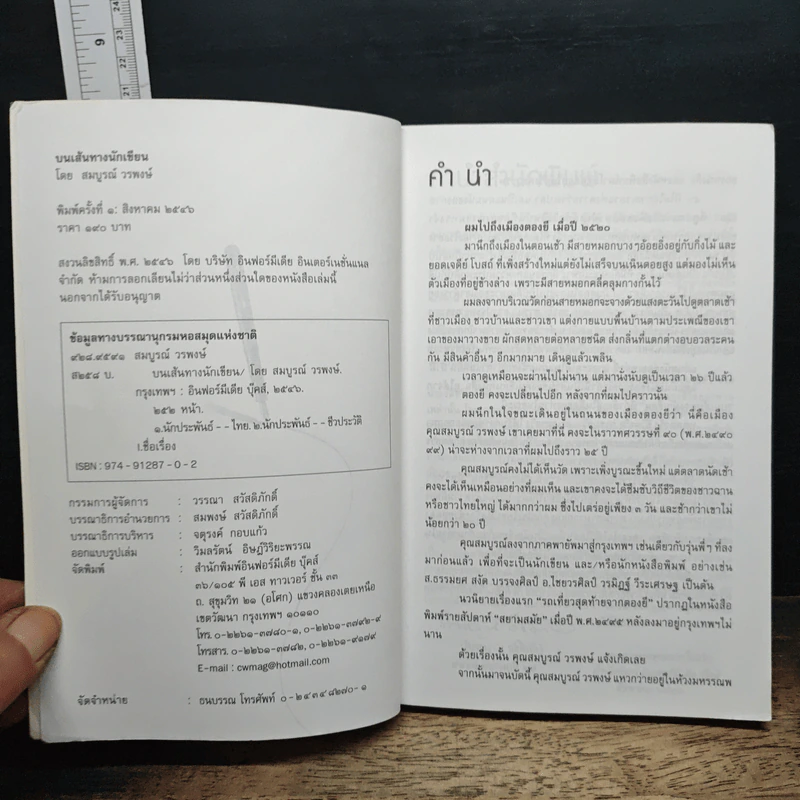 บนเส้นทางนักเขียน
โดย สมบูรณ์ วรพงษ์
พิมพ์ครั้งที่ ๑: สิงหาคม ๒๕๔๖
ราคา ๑๙๐ บาท
สงวนลิขสิทธิ์ พ.ศ. ๒๕๔๖ โดย บริษัท อินฟอร์มีเดีย อินเตอร์เนชั่นแนล
จำกัด ห้ามการลอกเลียนไม่ว่าส่วนหนึ่งส่วนใดของหนังสือเล่มนี้
นอกจากได้รับอนุญาต
ข้อมูลทางบรรณานุกรมหอสมุดแห่งชาติ
๙๒๘.๙๕๙๑ สมบูรณ์ วรพงษ์
ส๒๕๘ บ. บนเส้นทางนักเขียน/ โดย สมบูรณ์ วรพงษ์.
กรุงเทพฯ : อินฟอร์มีเดีย บุ๊คส์, ๒๕๔๖.
๒๕๒ หน้า.
๑.นักประพันธ์ - - ไทย. ๒.นักประพันธ์ - - ชีวประวัติ
I.ชื่อเรื่อง
ISBN : 974 - 91287 - 0 - 2
กรรมการผู้จัดการ : วรรณา สวัสดิภักดิ์
บรรณาธิการอำนวยการ : สมพงษ์ สวัสดิภักดิ์
บรรณาธิการบริหาร : จตุรงค์ กอบแก้ว
ออกแบบรูปเล่ม : วิมลรัตน์ อิษฎ์วิริยะพรรณ
จัดพิมพ์ : สำนักพิมพ์อินฟอร์มีเดีย บุ๊คส์
๓๖/๑๐๕ พี เอส ทาวเวอร์ ชั้น ๓๓
ถ. สุขุมวิท ๒๑ (อโศก) แขวงคลองเตยเหนือ
เขตวัฒนา กรุงเทพฯ ๑๐๑๑๐
โทร. ๐-๒๒๖๑-๓๗๘๐-๑, ๐-๒๒๖๑-๓๗๙๒-๙
โทรสาร. ๐-๒๒๖๑-๓๗๘๒, ๐-๒๒๖๑-๙๑๗๙
E-mail : cwmag@hotmail.com
จัดจำหน่าย : ธนบรรณ โทรศัพท์ ๐-๒๔๓๔๘๒๗๐-๑
คำ นำ
ผมไปถึงเมืองตองยี เมื่อปี ๒๕๒๐
มานึกถึงเมืองในตอนเช้า มีสายหมอกบางๆอ้อยอิ่งอยู่กับกิ่งไม้ และ
ยอดเจดีย์ โบสถ์ ที่เพิ่งสร้างใหม่แต่ยังไม่เสร็จบนเนินดอยสูง แต่มองไม่เห็น
ตัวเมืองที่อยู่ข้างล่าง เพราะมีสายหมอกคลี่คลุมกางกั้นไว้
ผมลงจากบริเวณวัดก่อนสายหมอกจะจางด้วยแสงตะวันไปดูตลาดเช้า
ที่ชาวเมือง ชาวบ้านและชาวเขา แต่งกายแบบพื้นบ้านตามประเพณีของเขา
เอาของมาวางขาย ผักสดหลายต่อหลายชนิด ส่งกลิ่นที่แตกต่างอบอวลระคน
กัน มีสินค้าอื่นๆ อีกมากมาย เดินดูแล้วเพลิน
เวลาดูเหมือนจะผ่านไปไม่นาน แต่มานั่งนับดูเป็นเวลา ๒๖ ปีแล้ว
ตองยี คงจะเปลี่ยนไปอีก หลังจากที่ผมไปคราวนั้น
ผมนึกในใจขณะเดินอยู่ในถนนของเมืองตองยีว่า นี่คือเมือง
คุณสมบูรณ์ วรพงษ์ เขาเคยมาที่นี่ คงจะในราวทศวรรษที่ ๙๐ (พ.ศ.๒๔๙๐
๙๙) น่าจะห่างจากเวลาที่ผมไปถึงราว ๒๕ ปี
คุณสมบูรณ์คงไม่ได้เห็นวัด เพราะเพิ่งบูรณะขึ้นใหม่ แต่ตลาดนัดเช้า
คงจะได้เห็นเหมือนอย่างที่ผมเห็น และเขาคงจะได้ซึมซับวิถีชีวิตของชาวฉาน
หรือชาวไทยใหญ่ ได้มากกว่าผม ซึ่งไปเตร่อยู่เพียง ๓ วัน และช้ากว่าเขาไม่
น้อยกว่า ๒๐ ปี
คุณสมบูรณ์ลงจากภาคพายัพมาสู่กรุงเทพฯ เช่นเดียวกับรุ่นพี่ๆ ที่ลง
มาก่อนแล้ว เพื่อที่จะเป็นนักเขียน และ/หรือนักหนังสือพิมพ์ อย่างเช่น
ส.ธรรมยศ สงัด บรรจงศิลป์ อ.ไชยวรศิลป์ วรมิฏฐ์ วีระเศรษฐ เป็นต้น
นวนิยายเรื่องแรก "รถเที่ยวสุดท้ายจากตองยี" ปรากฏในหนังสือ
พิมพ์รายสัปดาห์ "สยามสมัย" เมื่อปี พ.ศ.๒๔๙๕ หลังลงมาอยู่กรุงเทพฯไม่
นาน
ด้วยเรื่องนั้น คุณสมบูรณ์ วรพงษ์ แจ้งเกิดเลย
จากนั้นมาจนบัดนี้ คุณสมบูรณ์ วรพงษ์ แหวกว่ายอยู่ในห้วงมหรรณพ
9
24
23
22
21